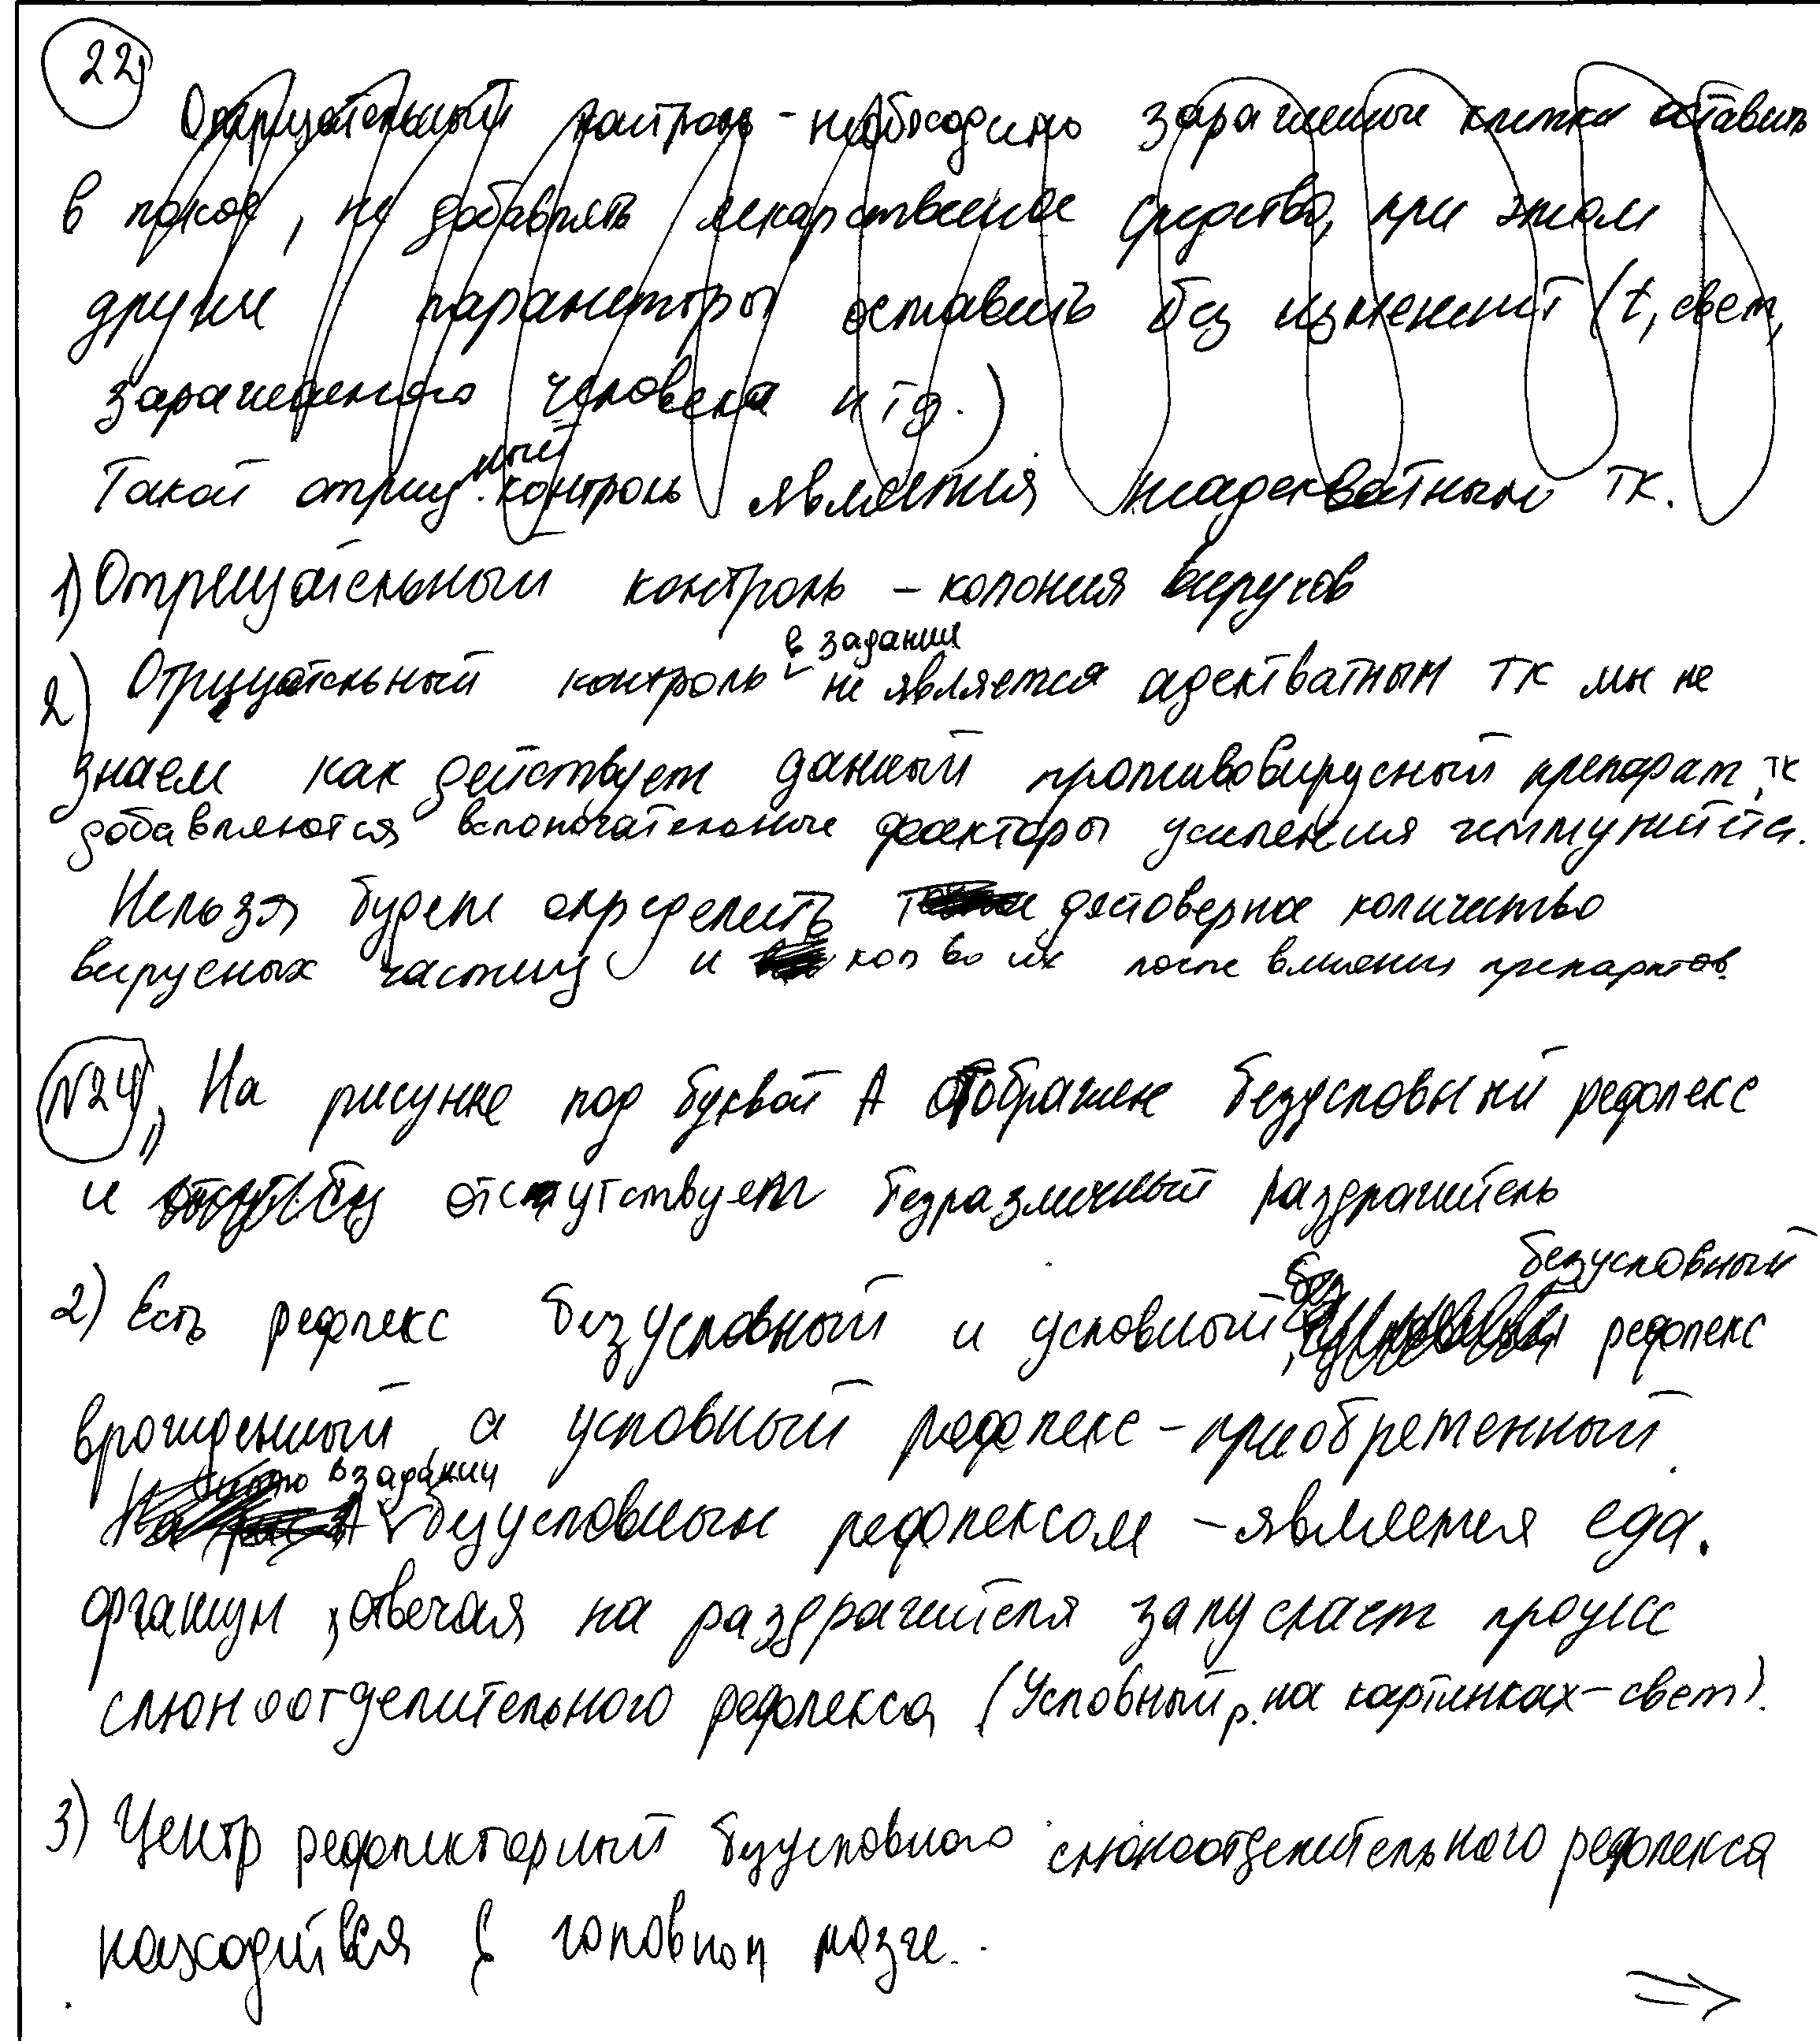 22)
Отрицательный контроль - необходимо зараженные клетки оставить
в покое, не добавлять лекарственное средство, при этом
другие параметры оставить без изменений (t, свет,
зараженного человека и тд.)
Такой отриц.ный контроль является неадекватным тк.
1) Отрицательный контроль – колония вирусов
2) Отрицательный контроль в задании не является адекватным тк мы не
знаем как действует данный противовирусный препарат, тк
добавляются вспомогательные факторы усиления иммунитета.
Нельзя будет определить достоверное количество
вирусных частиц и кол во их после влияния препаратов.
N24 1) На рисунке под буквой А отображен безусловный рефлекс
и отсутствует безразличный раздражитель
2) Есть рефлекс безусловный и условный, безусловный рефлекс
врожденный, а условный рефлекс - приобретенный.
в задании безусловным рефлексом - является еда.
организм, отвечая на раздражителя запускает процесс
слюноотделительного рефлекса (Условный р. на картинках - свет).
3) Центр рефлекторный безусловного слюноотделительного рефлекса
находится в головном мозге.